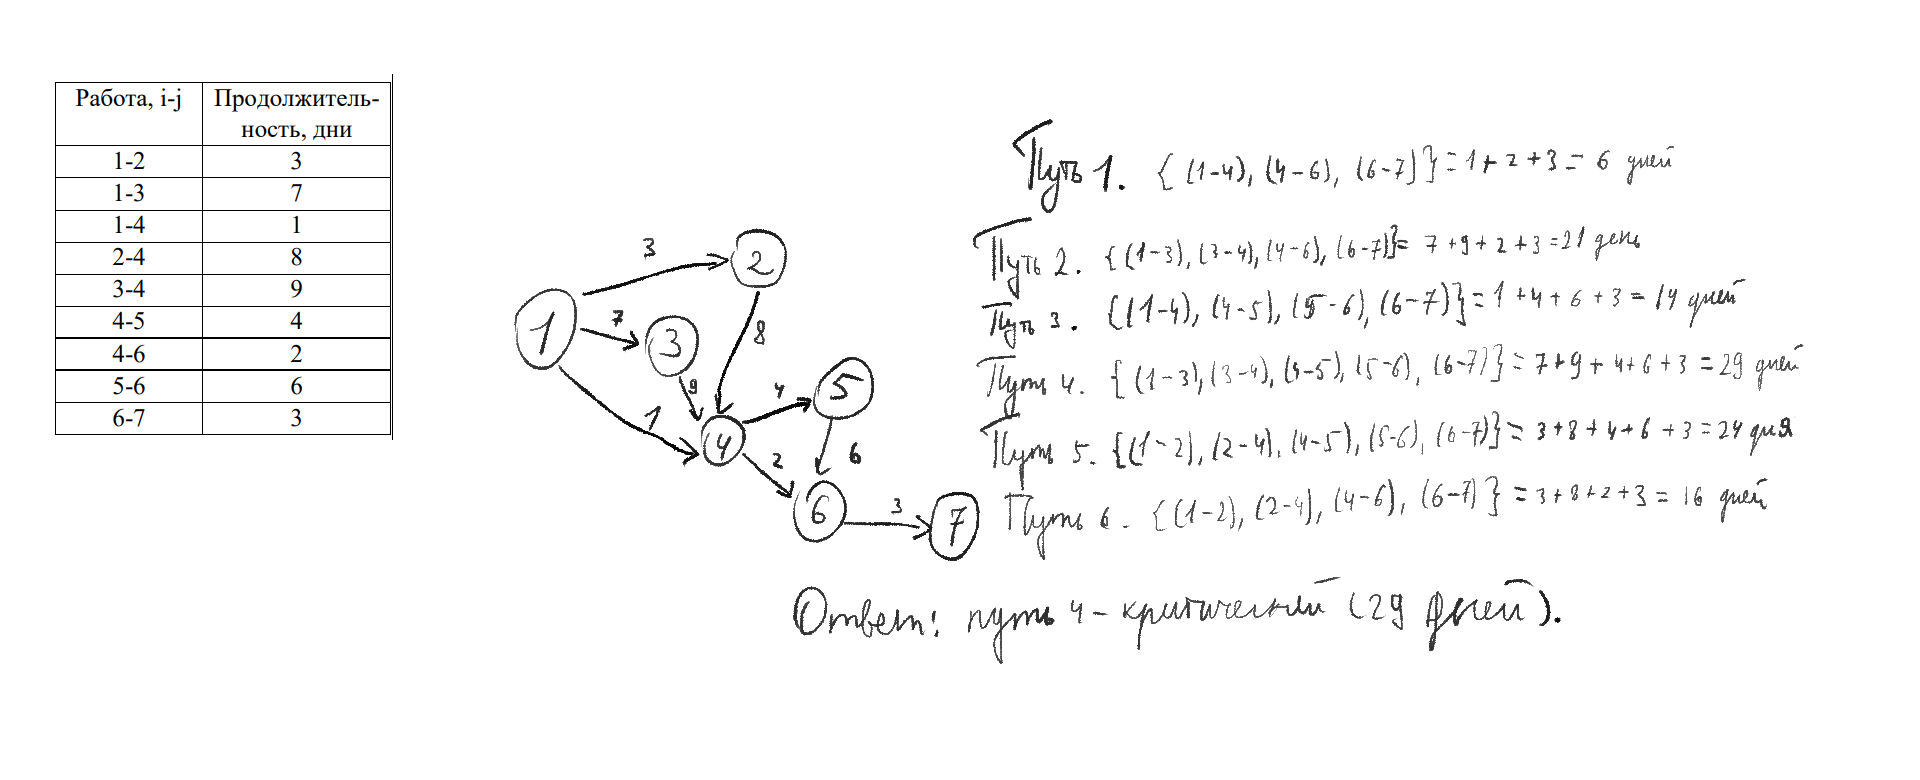 Работа, i-j Продолжитель-
ность, дни
1-2 3
1-3 7
1-4 1
2-4 8
3-4 9
4-5 4
4-6 2
5-6 6
6-7 3
3
2
1
7
3
8
9
4
5
1
4
2
6
6
3
7
Путь 1. { (1-4), (4-6), (6-7) } = 1 + 2 + 3 = 6 дней
Путь 2. { (1-3), (3-4), (4-6), (6-7)} = 7 + 9 + 2 + 3 = 21 день
Путь 3. {(1-4), (4-5), (5-6), (6-7)} = 1 + 4 + 6 + 3 = 14 дней
Путь 4. { (1-3), (3-4), (4-5), (5-6), (6-7)} = 7 + 9 + 4 + 6 + 3 = 29 дней
Путь 5. {(1-2), (2-4), (4-5), (5-6), (6-7)} = 3 + 8 + 4 + 6 + 3 = 24 дня
Путь 6. {(1-2), (2-4), (4-6), (6-7) } = 3 + 8 + 2 + 3 = 16 дней
Ответ: путь 4 - критический (29 дней).